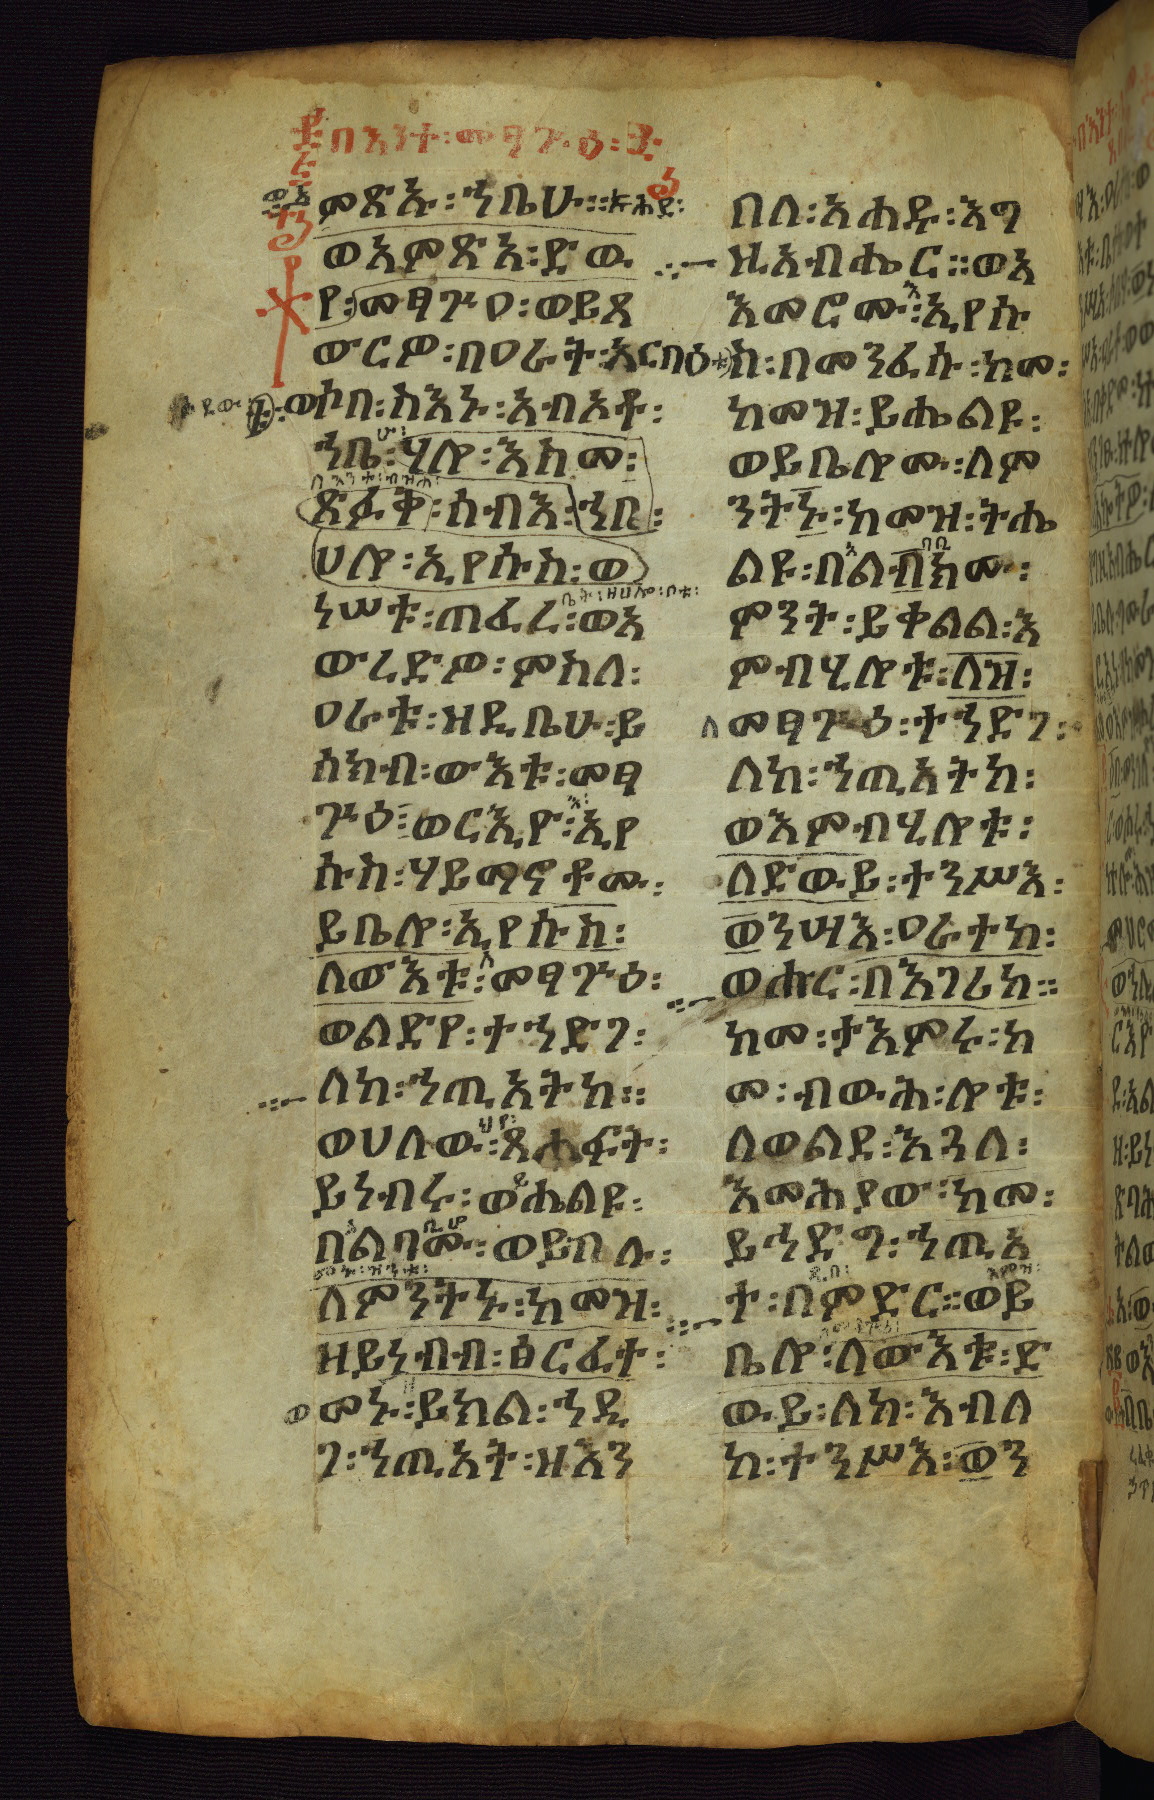 በእንተ፡መፃጉዕ፡
ምጽኡ፡ኀቤሁ፡፡
ወአምጽአ፡ድወ
የ፡መፃጉዐ፡ወይጸ
ውርዎ፡በዐራት፡አርበዕቱ
ወሶበ፡ስእኑ፡አብአቶ፡
ኀቤ፡ሃሎ፡እስመ፡
ጽፉቅ፡ሰብእ፡ኀበ፡
ሀሎ፡ኢየሱስ፡ወ
ነሠቱ፡ጠፈረ፡ወአ
ውረድዎ፡ምስለ፡
ዐራቱ፡ዘዲቤሁ፡ይ
ሰክብ፡ውእቱ፡መፃ
ጉዕ፡ወርኢዮ፡ኢየ
ሱስ፡ሃይማኖቶሙ፡
ይቤሎ፡ኢየሱስ፡
ለውእቱ፡መፃጉዕ፡
ወልድየ፡ተኀድገ፡
ለከ፡ኀጢአትከ፡፡
ወሀለው፡ጸሐፍት፡
ይነብሩ፡ወሔልዩ፡
በልባሙ፡ወይበሉ፡
ለምንትኑ፡ከመዝ፡
ዘይነብብ፡ፅርፈተ፡
መኑ፡ይክል፡ኀዲ
ገ፡ኀጢአት፡ዘእን
በለ፡አሐዱ፡እግ
ዚአብሔር፡፡ወአ
እመሮሙ፡ኢየሱ
ስ፡በመንፈሱ፡ከመ፡
ከመዝ፡ይሔልዩ፡
ወይቤሎሙ፡ለም
ንትኑ፡ከመዝ፡ትሔ
ልዩ፡በልብክሙ፡
ምንት፡ይቀልል፡እ
ምብሂሎቱ፡ለዝ፡
መፃጉዕ፡ተኀድገ፡
ለከ፡ኀጢአትከ፡
ወእምብሂሎቱ፡
ለድውይ፡ተንሥእ፡
ወንሣእ፡ዐራተከ፡
ወሑር፡በእገሪከ፡፡
ከመ፡ታእምሩ፡ከ
መ፡ብውሕ፡ሎቱ፡
ለወልደ፡እጓለ፡
እመሕያው፡ከመ፡
ይኅድግ፡ኀጢአ
ተ፡በምድር፡፡ወይ
ቤሎ፡ለውእቱ፡ድ
ውይ፡ለከ፡እብለ
ከ፡ተንሥእ፡ወን